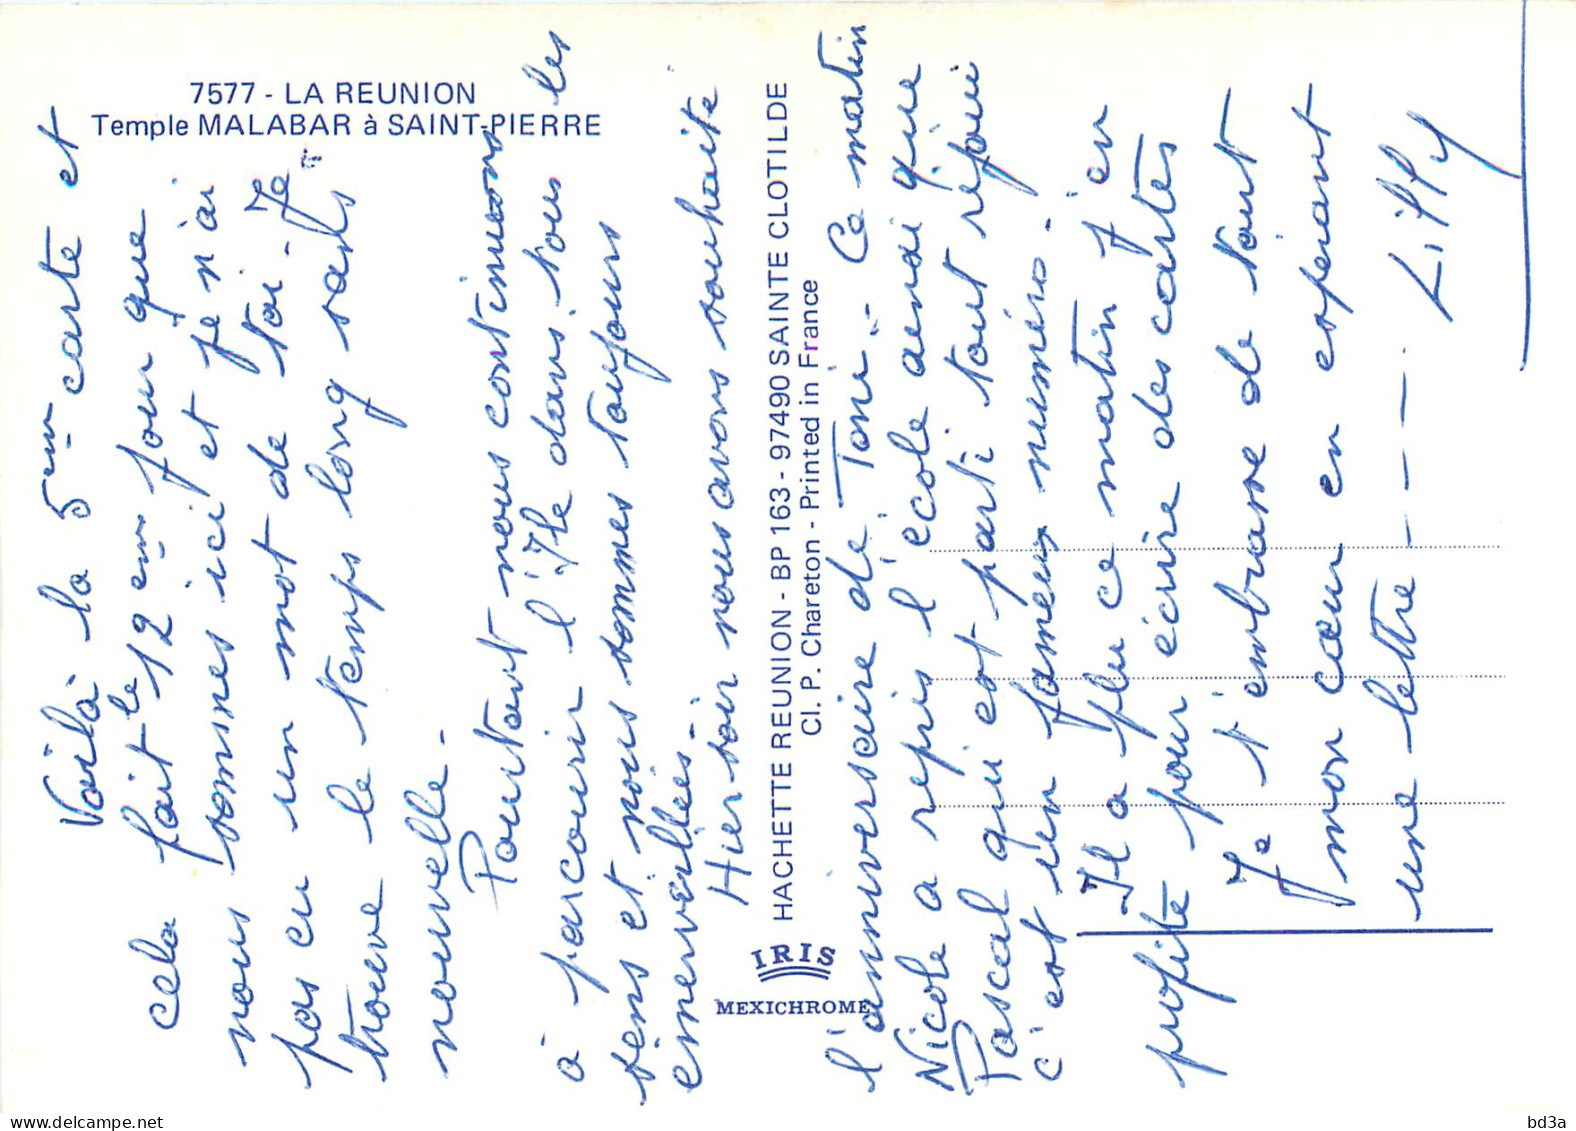 7577 - LA REUNION
Temple MALABAR à SAINT-PIERRE
Voilà la 5em carte et
cela fait le 12em jour que
nous sommes ici et je n'ai
pas eu un mot de toi. Je
trouve le temps long sans
nouvelle.
Pourtant nous continuons
à parcourir l'Ile dans tous les
sens et nous sommes toujours
émerveillées.
Hier soir nous avons souhaité
l'anniversaire de Toni. Ce matin
Nicole a repris l'école ainsi que
Pascal qui est parti tout réjoui
c'est un fameux numéro.
Il a plu ce matin j'en
profite pour écrire des cartes
Je t'embrasse de tout
mon cœur en espérant
une lettre - - - -
Liffy
HACHETTE REUNION - BP 163 - 97490 SAINTE CLOTILDE
Cl. P. Chareton - Printed in France
IRIS
MEXICHROME
delcampe.net
bd3a